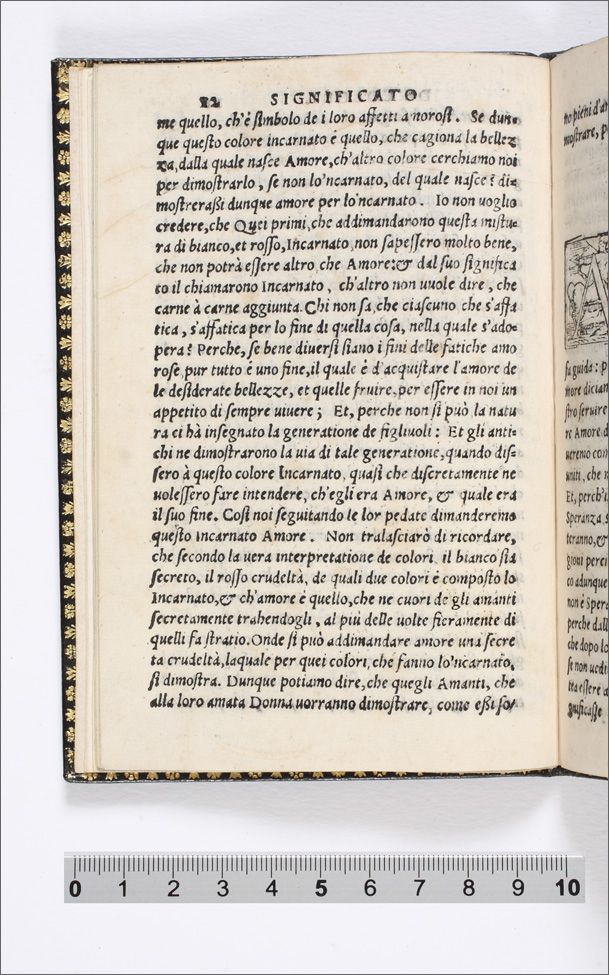 22 SIGNIFICATO
me quello, ch'é simbolo de i loro affetti amorosi. Se dun-
que questo colore incarnato è quello, che cagiona la bellez
za, dalla quale nasce Amore, ch'altro colore cerchiamo noi
per dimostrarlo, se non lo'ncarnato, del quale nasce? di-
mostrerassi dunque amore per lo'ncarnato. Io non uoglio
credere, che Quei primi, che addimandarono questa mistu-
ra di bianco, et rosso, Incarnato, non sapessero molto bene,
che non potrà essere altro che Amore: & dal suo significa
to il chiamarono Incarnato, ch'altro non uuole dire, che
carne à carne aggiunta. Chi non sa, che ciascuno che s'affa
tica, s'affatica per lo fine di quella cosa, nella quale s'ado-
pera? Perche, se bene diuersi siano i fini delle fatiche amo
rose, pur tutto è uno fine, il quale é d'acquistare l'amore de
le desiderate bellezze, et quelle fruire, per essere in noi un
appetito di sempre uiuere; Et, perche non si può la natu
ra ci hà insegnato la generatione de figliuoli: Et gli anti-
chi ne dimostrarono la uia di tale generatione, quando dis-
sero à questo colore Incarnato, quasi che discretamente ne
uolessero fare intendere, ch'egli era Amore, & quale era
il suo fine. Così noi seguitando le lor pedate dimanderemo
questo Incarnato Amore. Non tralasciarò di ricordare,
che secondo la uera interpretatione de colori, il bianco sia
secreto, il rosso crudeltà, de quali due colori è composto lo
Incarnato, & ch'amore è quello, che ne cuori de gli amanti
secretamente trahendogli, al più delle uolte fieramente di
quelli fa stratio. Onde si può addimandare amore una secre
ta crudeltà, laquale per quei colori, che fanno lo'ncarnato,
si dimostra. Dunque potiamo dire, che quegli Amanti, che
alla loro amata Donna uorranno dimostrare, come essi so/
no pieni d'a
mostrare, p
fa guida: p
more dician
stro seruire
re Amore d
ueremo com
uniti, che n
Et, perch'a
Speranza s
teranno, &
gioni perci
co adunque
non è Sper
perche dall
che dopo lo
se non uedi
tta essere a
gnificasse
0 1 2 3 4 5 6 7 8 9 10